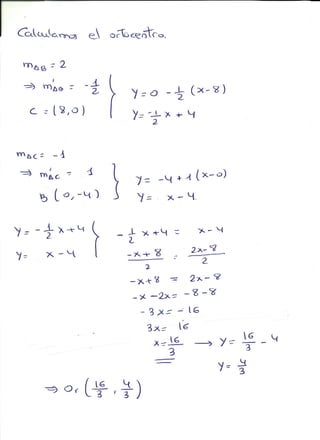 Calculamos el ortocentro.
m_AB = 2
⇒ m'_AB = -1/2
C = (8,0)
y = 0 - 1/2 (x-8)
y = -1/2 x + 4
m_AC = -1
⇒ m'_AC = 1
B (0,-4)
y = -4 + 1 (x-0)
y = x - 4
y = -1/2 x + 4
y = x - 4
-1/2 x + 4 = x - 4
(-x + 8)/2 = (2x - 8)/2
-x + 8 = 2x - 8
-x - 2x = -8 - 8
-3x = -16
3x = 16
x = 16/3 → y = 16/3 - 4
y = 4/3
⇒ Or (16/3, 4/3)